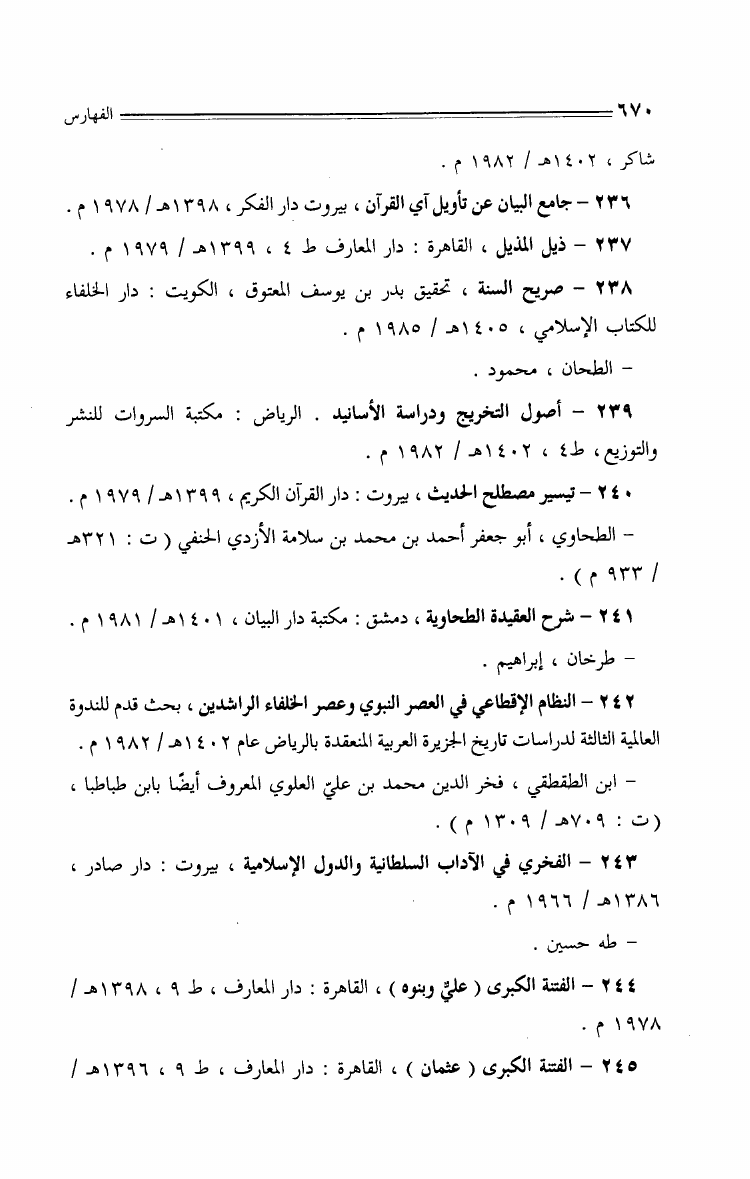 ٦٧٠ الفهارس
شاكر ، ١٤٠٢هـ / ١٩٨٢ م .
٢٣٦ – جامع البيان عن تأويل آي القرآن ، بيروت دار الفكر ، ١٣٩٨هـ / ١٩٧٨ م .
٢٣٧ – ذيل المذيل ، القاهرة : دار المعارف ط ٤ ، ١٣٩٩هـ / ١٩٧٩ م .
٢٣٨ – صريح السنة ، تحقيق بدر بن يوسف المعتوق ، الكويت : دار الخلفاء
للكتاب الإسلامي ، ١٤٠٥هـ / ١٩٨٥ م .
– الطحان ، محمود .
٢٣٩ – أصول التخريج ودراسة الأسانيد . الرياض : مكتبة السروات للنشر
والتوزيع ، ط٤ ، ١٤٠٢هـ / ١٩٨٢ م .
٢٤٠ – تيسير مصطلح الحديث ، بيروت : دار القرآن الكريم ، ١٣٩٩هـ / ١٩٧٩ م .
– الطحاوي ، أبو جعفر أحمد بن محمد بن سلامة الأزدي الحنفي ( ت : ٣٢١هـ
/ ٩٣٣ م ) .
٢٤١ – شرح العقيدة الطحاوية ، دمشق : مكتبة دار البيان ، ١٤٠١هـ / ١٩٨١ م .
– طرخان ، إبراهيم .
٢٤٢ – النظام الإقطاعي في العصر النبوي وعصر الخلفاء الراشدين ، بحث قدم للندوة
العالمية الثالثة لدراسات تاريخ الجزيرة العربية المنعقدة بالرياض عام ١٤٠٢هـ / ١٩٨٢ م .
– ابن الطقطقي ، فخر الدين محمد بن عليّ العلوي المعروف أيضًا بابن طباطبا ،
( ت : ٧٠٩هـ / ١٣٠٩ م ) .
٢٤٣ – الفخري في الآداب السلطانية والدول الإسلامية ، بيروت : دار صادر ،
١٣٨٦هـ / ١٩٦٦ م .
– طه حسين .
٢٤٤ – الفتنة الكبرى ( عليٌّ وبنوه ) ، القاهرة : دار المعارف ، ط ٩ ، ١٣٩٨هـ /
١٩٧٨ م .
٢٤٥ – الفتنة الكبرى ( عثمان ) ، القاهرة : دار المعارف ، ط ٩ ، ١٣٩٦هـ /